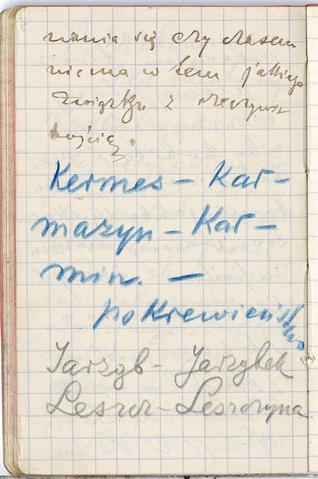 wania się czy czasem
niema w tem jakiego
związku z rzeczywis
tością.
Kermes – Kar-
mazyn – Kar-
min. –
pokrewieństwo
Jarząb – Jarząbek
Leszcz – Leszczyna